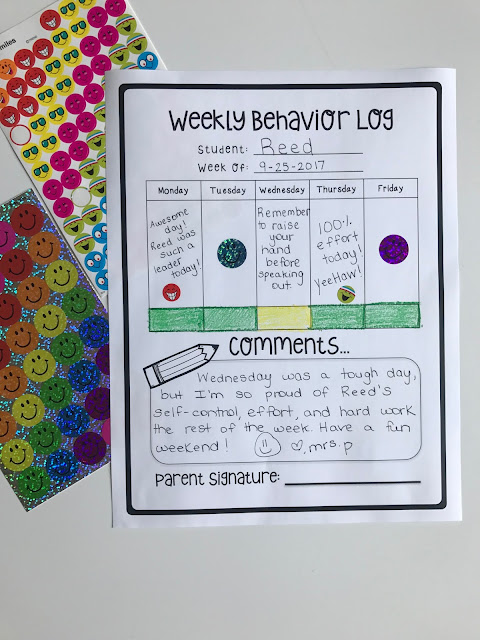 miles
Weekly Behavior Log
Student: Reed
Week Of: 9-25-2017
Monday Tuesday Wednesday Thursday Friday
Awesome
day!
Reed was
such a
leader
today!
Remember
to raise
your
hand
before
speaking
out.
100%
effort
today!
YeeHaw!
Comments...
Wednesday was a tough day,
but I'm so proud of Reed's
self-control, effort, and hard work
the rest of the week. Have a fun
weekend! ♡, mrs. p
Parent Signature: